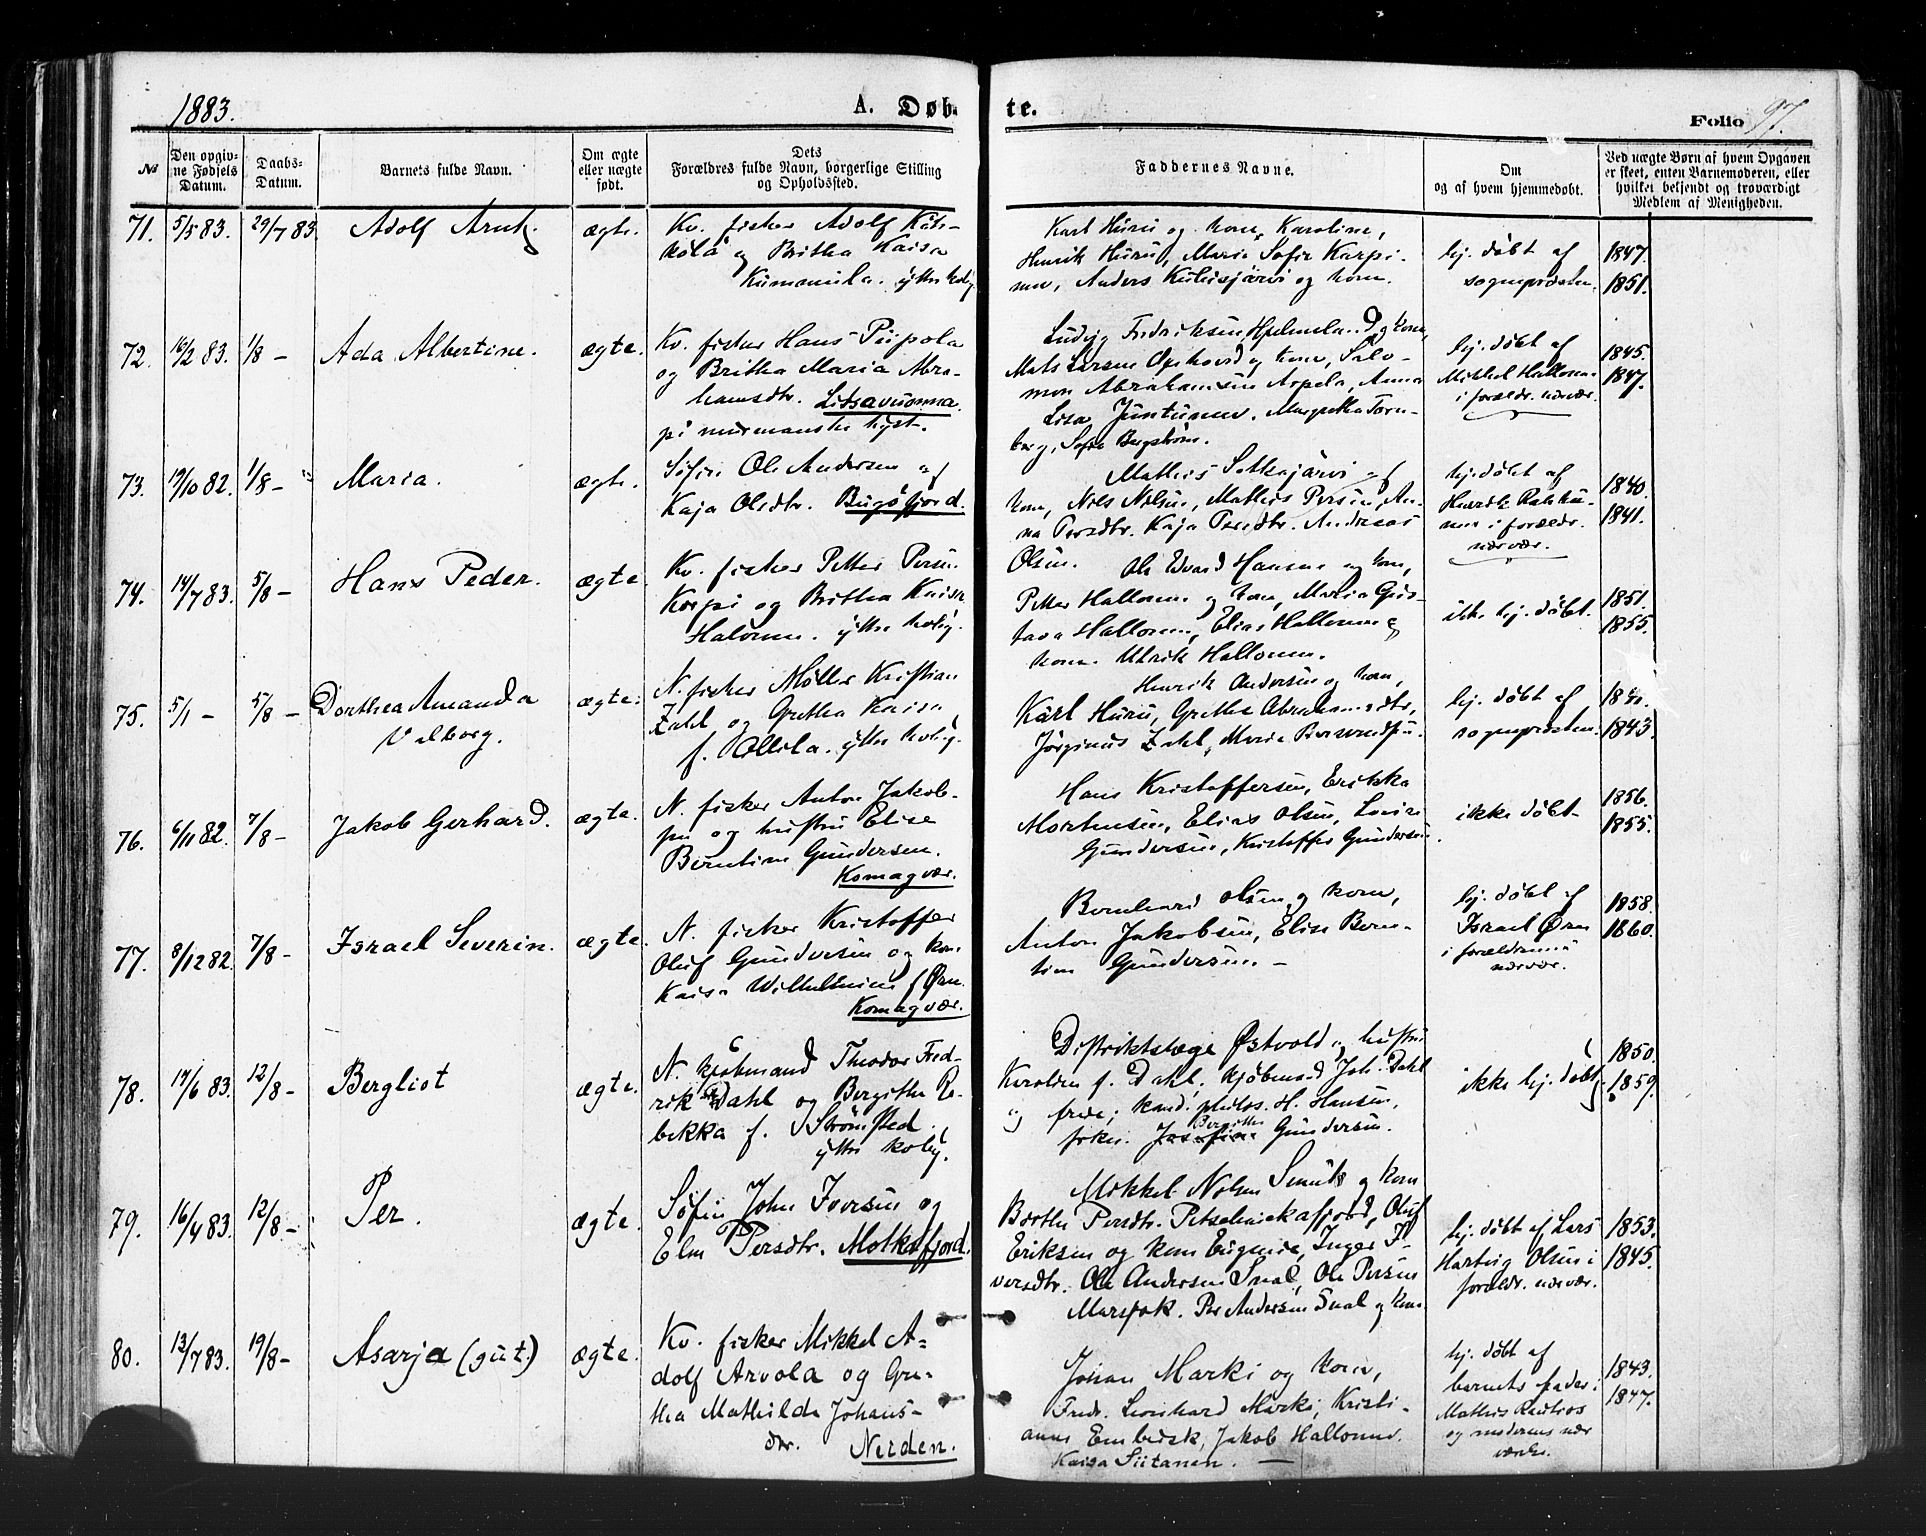 1883.
A. Døb-
te.
Folio 97.
№
Den opgiv-
ne Fødsels
Datum.
Daabs-
Datum.
Barnets fulde Navn.
Om ægte
eller nægte
født.
Dets
Forældres fulde Navn, borgerlige Stilling
og Opholdssted.
Faddernes Navne.
Om
og af hvem hjemmedøbt.
Ved nægte Børn af hvem Opgaven
er skeet, enten Barnemoderen, eller
hvilket bekjendt og troværdigt
Medlem af Menigheden.
71. 5/5 83. 29/7 83. Adolf
ægte.
Kv. fisker Adolf
og Britha Kaisa
ytthre kolig
Karl Huru og kone, Karoline,
Henrik Huru, Maria Sofie Karpi-
nen, Anders Kulisjärvi og kone.
hj. døbt af
sognepræsten.
1847.
1851.
72. 16/2 83. 1/8 - Ada Albertine.
ægte.
Kv. fisker Hans Piipola
og Britha Maria Abra-
hamsdtr. Litsavuonna.
på murmanske kyst.
Ludvig Fredriksen Hjelmeland og kone,
Mats Larsen og kone, Salo-
mon Abrahamsen Aspela, Anna
Lisa Juntunen. Margretha Torn-
berg, Sofie Bergstrøm.
hj. døbt af
Mikkel Hallonen
i forældr. nærvær.
1845.
1847.
73. 19/10 82. 1/8 - Maria.
ægte.
Søfin Ole Andersen og
Kaja Olsdtr. Bugøfjord.
Mathis Sotkajärvi og
kone, Nils Nilsen, Mathis Persen, An-
na Persdtr. Kaja Persdtr. Andreas
Olsen.
hj. døbt af
Henrik
nen i forældr.
nærvær.
1840.
1841.
74. 14/7 83. 5/8 - Hans Peder.
ægte.
Kv. fisker Petter Persen
Korpi og Britha Kaisa
Halonen. ytthre kolig.
Ole Edvard Hansen og kone,
Petter Hallonen og kone, Maria Gus-
tava Hallonen, Elias Hallonen &
kone. Ulrik Hallonen.
ikke hj. døbt.
1851.
1855.
75. 5/1 - 5/8 - Dorthea Amanda
Valborg.
ægte.
N. fisker Møller Kristian
Zahl og Gretha Kaisa
f. Ollila. ytthre kolig.
Henrik Andersen og kone,
Karl Huru, Grethe Abrahamsdtr,
Jørginus Zahl, Maria
hj. døbt af
sognepræsten.
1843.
76. 6/11 82. 7/8 - Jakob Gerhard.
ægte.
N. fisker Anton Jakob-
sen og hustru Elise
Berntine Gundersen.
Komagvær.
Hans Kristoffersen, Erikka
Mortensen, Elias Olsen, Lovise
Gundersen, Kristoffer Gundersen.
ikke døbt
1856.
1855.
77. 8/12 82. 7/8 - Israel Severin.
ægte.
N. fisker Kristoffer
Oluf Gundersen og kone
Kaisa Wilhelmine f. Ørn.
Komagvær.
Bernhard Olsen og kone,
Anton Jakobsen, Elise Bern-
tine Gundersen. -
hj. døbt af
Israel Ørn
i forældrenes
nærvær.
1858.
1860.
78. 17/6 83. 12/8 - Bergliot
ægte.
N. kjøbmand Theodor Fred-
rik Dahl og Bergitha Re-
bekka f. Strømsted.
ytthre kolig.
Distriktslæge Østvold og hustru
Karoline f. Dahl. kjøbmand Joh. Dahl
og frue; kand. philos. H. Hansen,
frøken. Josefine Bergitte Gundersen.
ikke hj. døbt
1850.
1859.
79. 16/4 83. 12/8 - Per.
ægte.
Søfin John Iversen og
Elen Persdtr. Motkafjord.
Mikkel Nilsen Smuk og kone
Berthe Persdtr. Petschenickafjord, Oluf
Eriksen og kone Eugenie, Inger I-
versdtr. Ole Andersen Snal, Ole Persen
Marsjok. Per Andersen Snal og kone
hj. døbt af Lars
Hartvig Olsen i
forældr. nærvær.
1853.
1845.
80. 13/7 83. 19/8 - Asarja (gut.)
ægte.
Kv. fisker Mikkel A-
dolf Arvola og Gre-
tha Mathilde Johans-
dtr. Neiden.
Johan Marki og kone,
Fredr. Leonhard Marki, Kristi-
anne Embrik, Jakob Hallonen.
Kaisa Siitanen. -
hj. døbt af
barnets fader i
Mathis Rautios
og moderens nær
værelse.
1843.
1847.